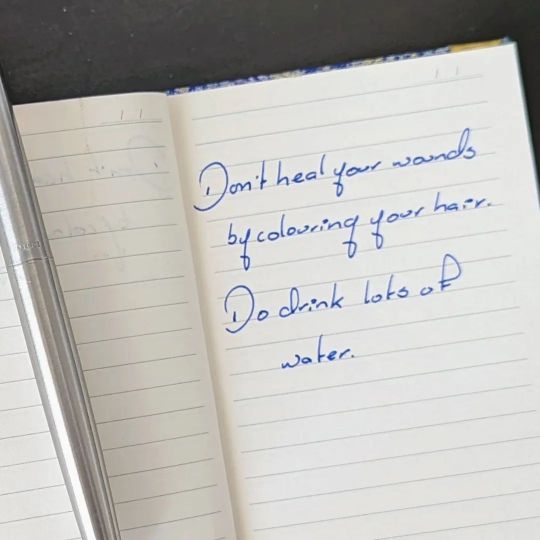 Don't heal your wounds
by colouring your hair.
Do drink lots of
water.